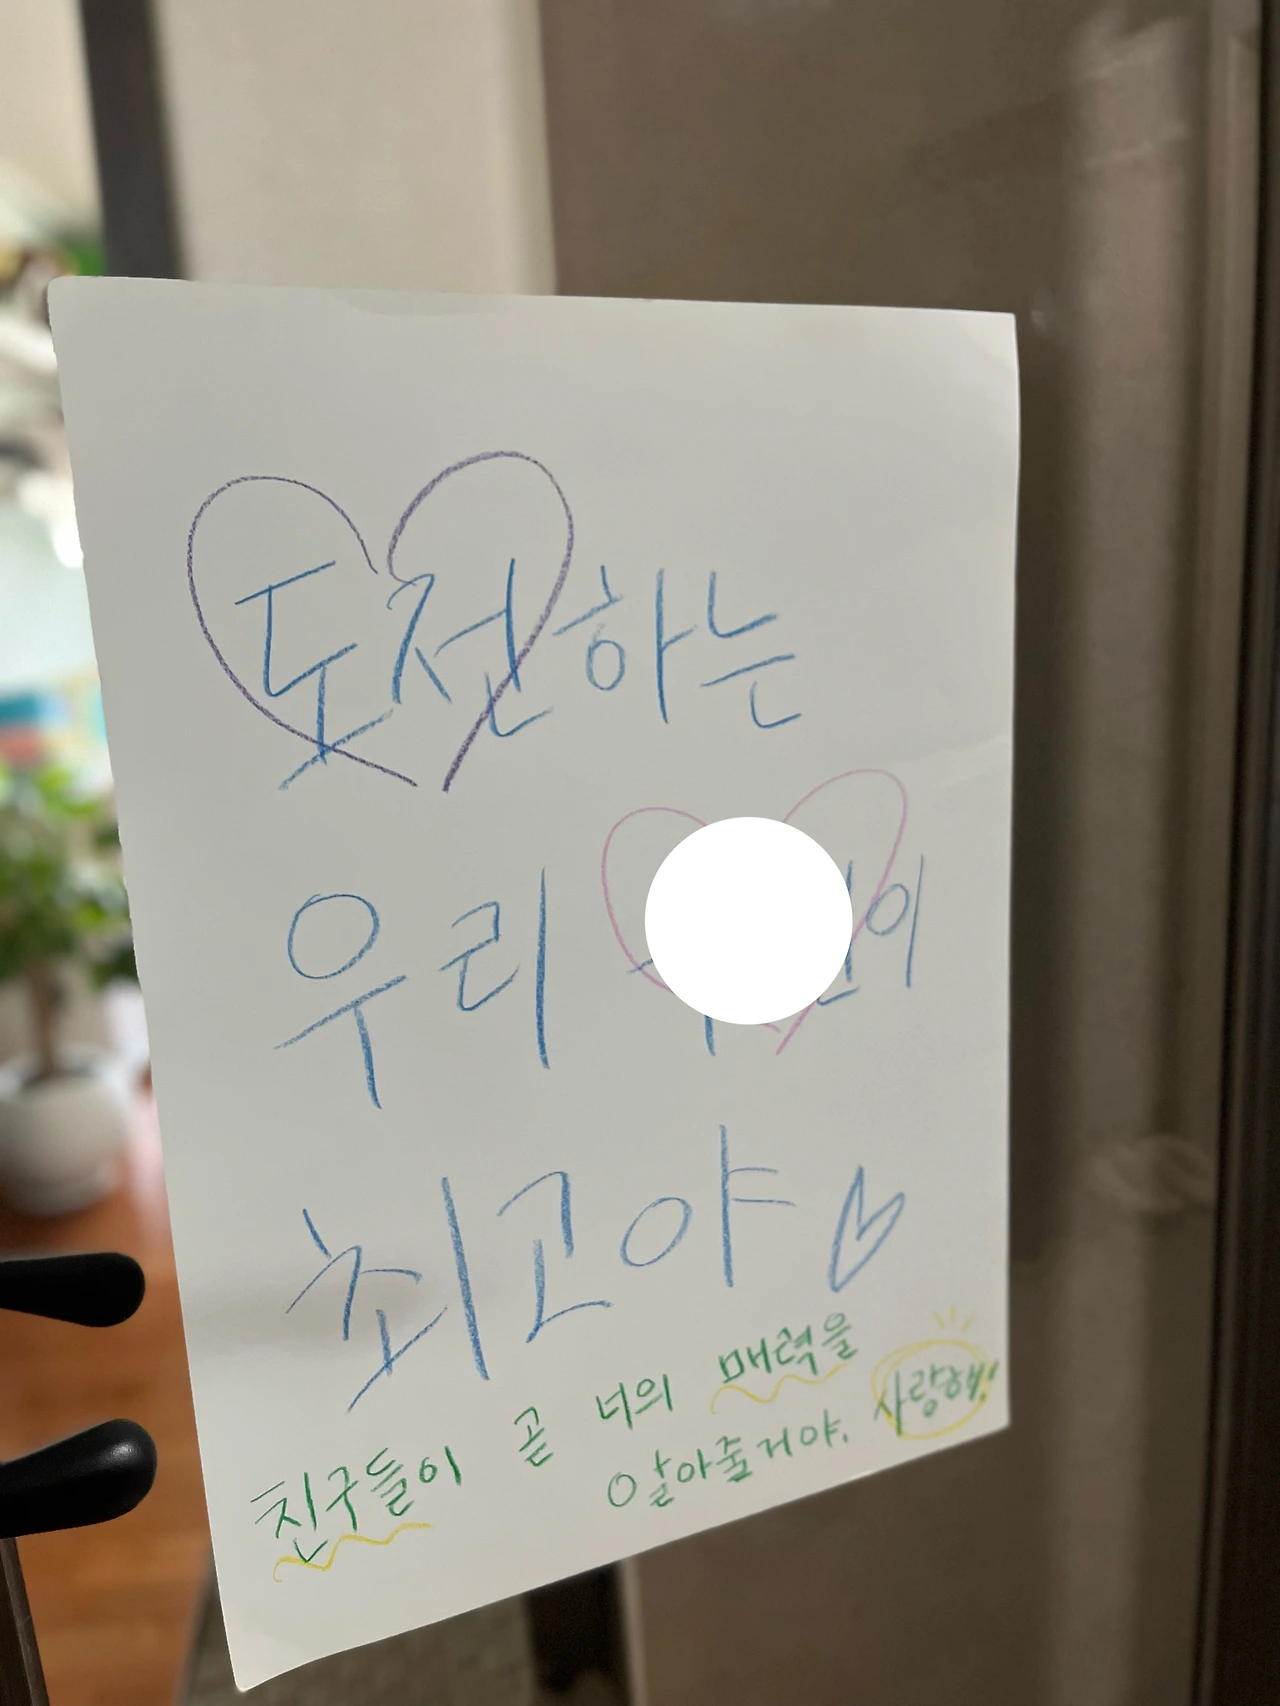 도전하는
우리
최고야
친구들이 곧 너의 매력을
알아줄거야. 사랑해!